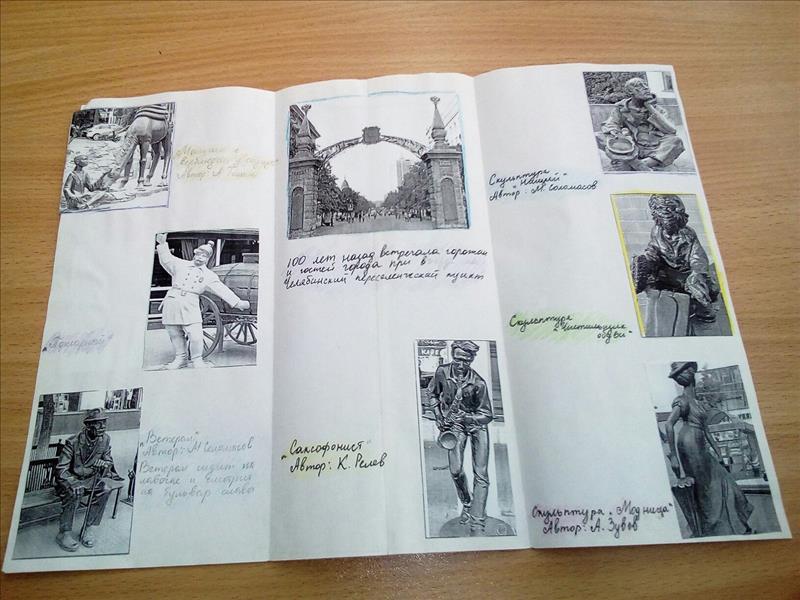 Мальчик с
верблюдом
Автор: А.
"Пожарный"
"Ветеран"
Автор: М Соломасов
Ветеран сидит на
лавочке и смотрит
на бульвар славы
100 лет назад встречала горожан
и гостей города при в
Челябинский переселенческий пункт
"Саксофонист"
Автор: К. Релев
Скульптура
"Нищей"
Автор: М. Соломасов
Скульптура
обуви"
Скульптура "Модница"
Автор: А. Зубов